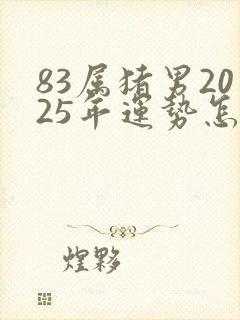 83属猪男20
25年運势怎
煌夥